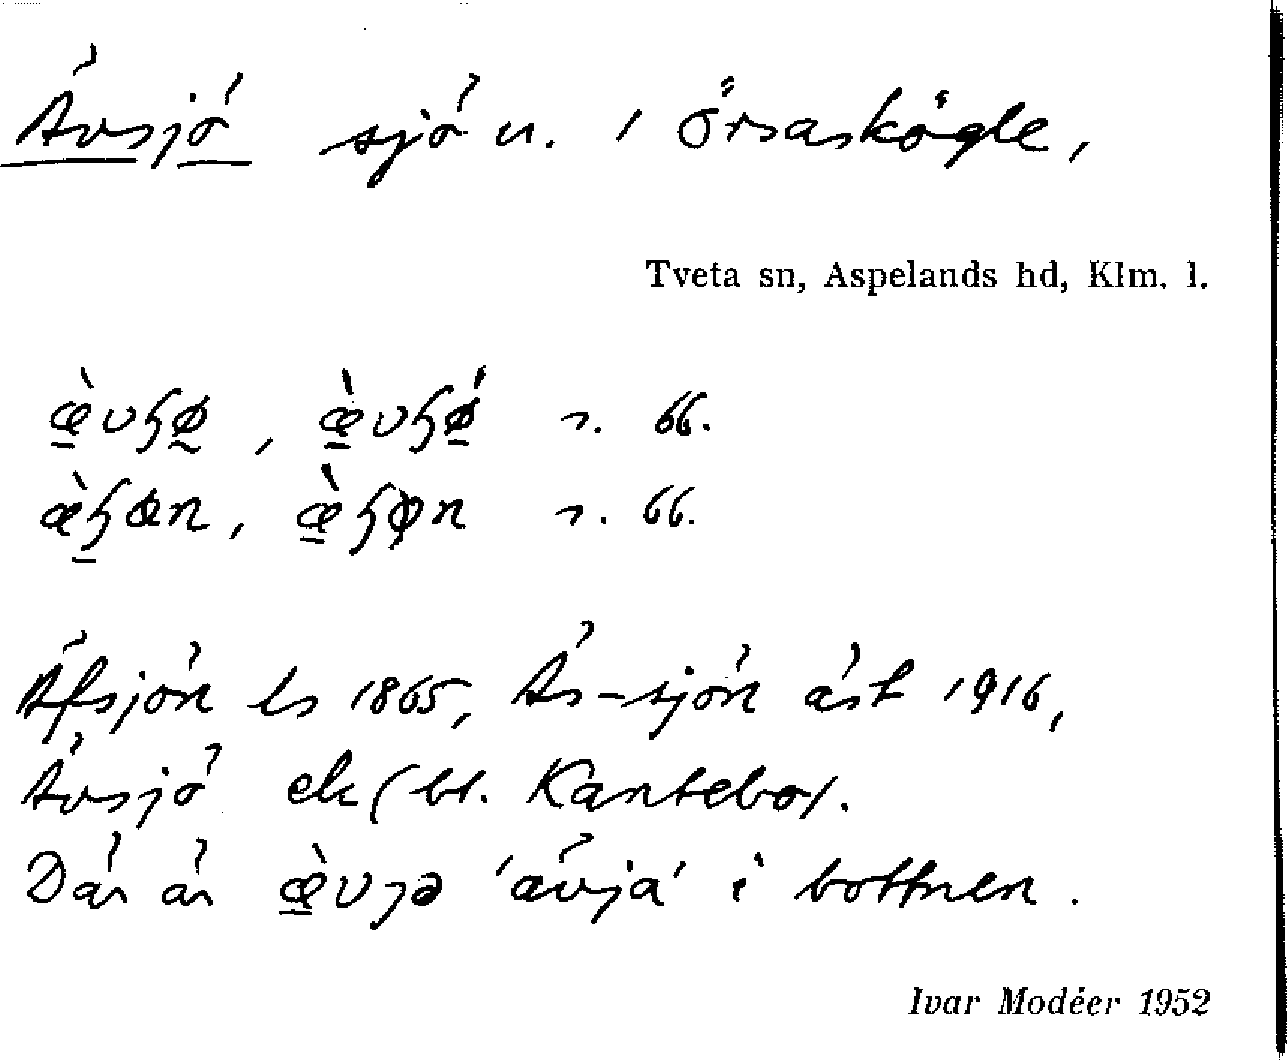 Ävsjö sjö n. i Örsaskögle,
Tveta sn, Aspelands hd, Klm. l.
æ̀vɧø, æ̀vɧǿ n. 66.
æ̀ɧøn, æ̀ɧøn n. 66.
Äfsjön ls 1865, Äs-sjön äst 1916,
Ävsjö ek (bl. Kantebo).
Där är æ̀vjə 'ävja' i bottnen.
Ivar Modéer 1952